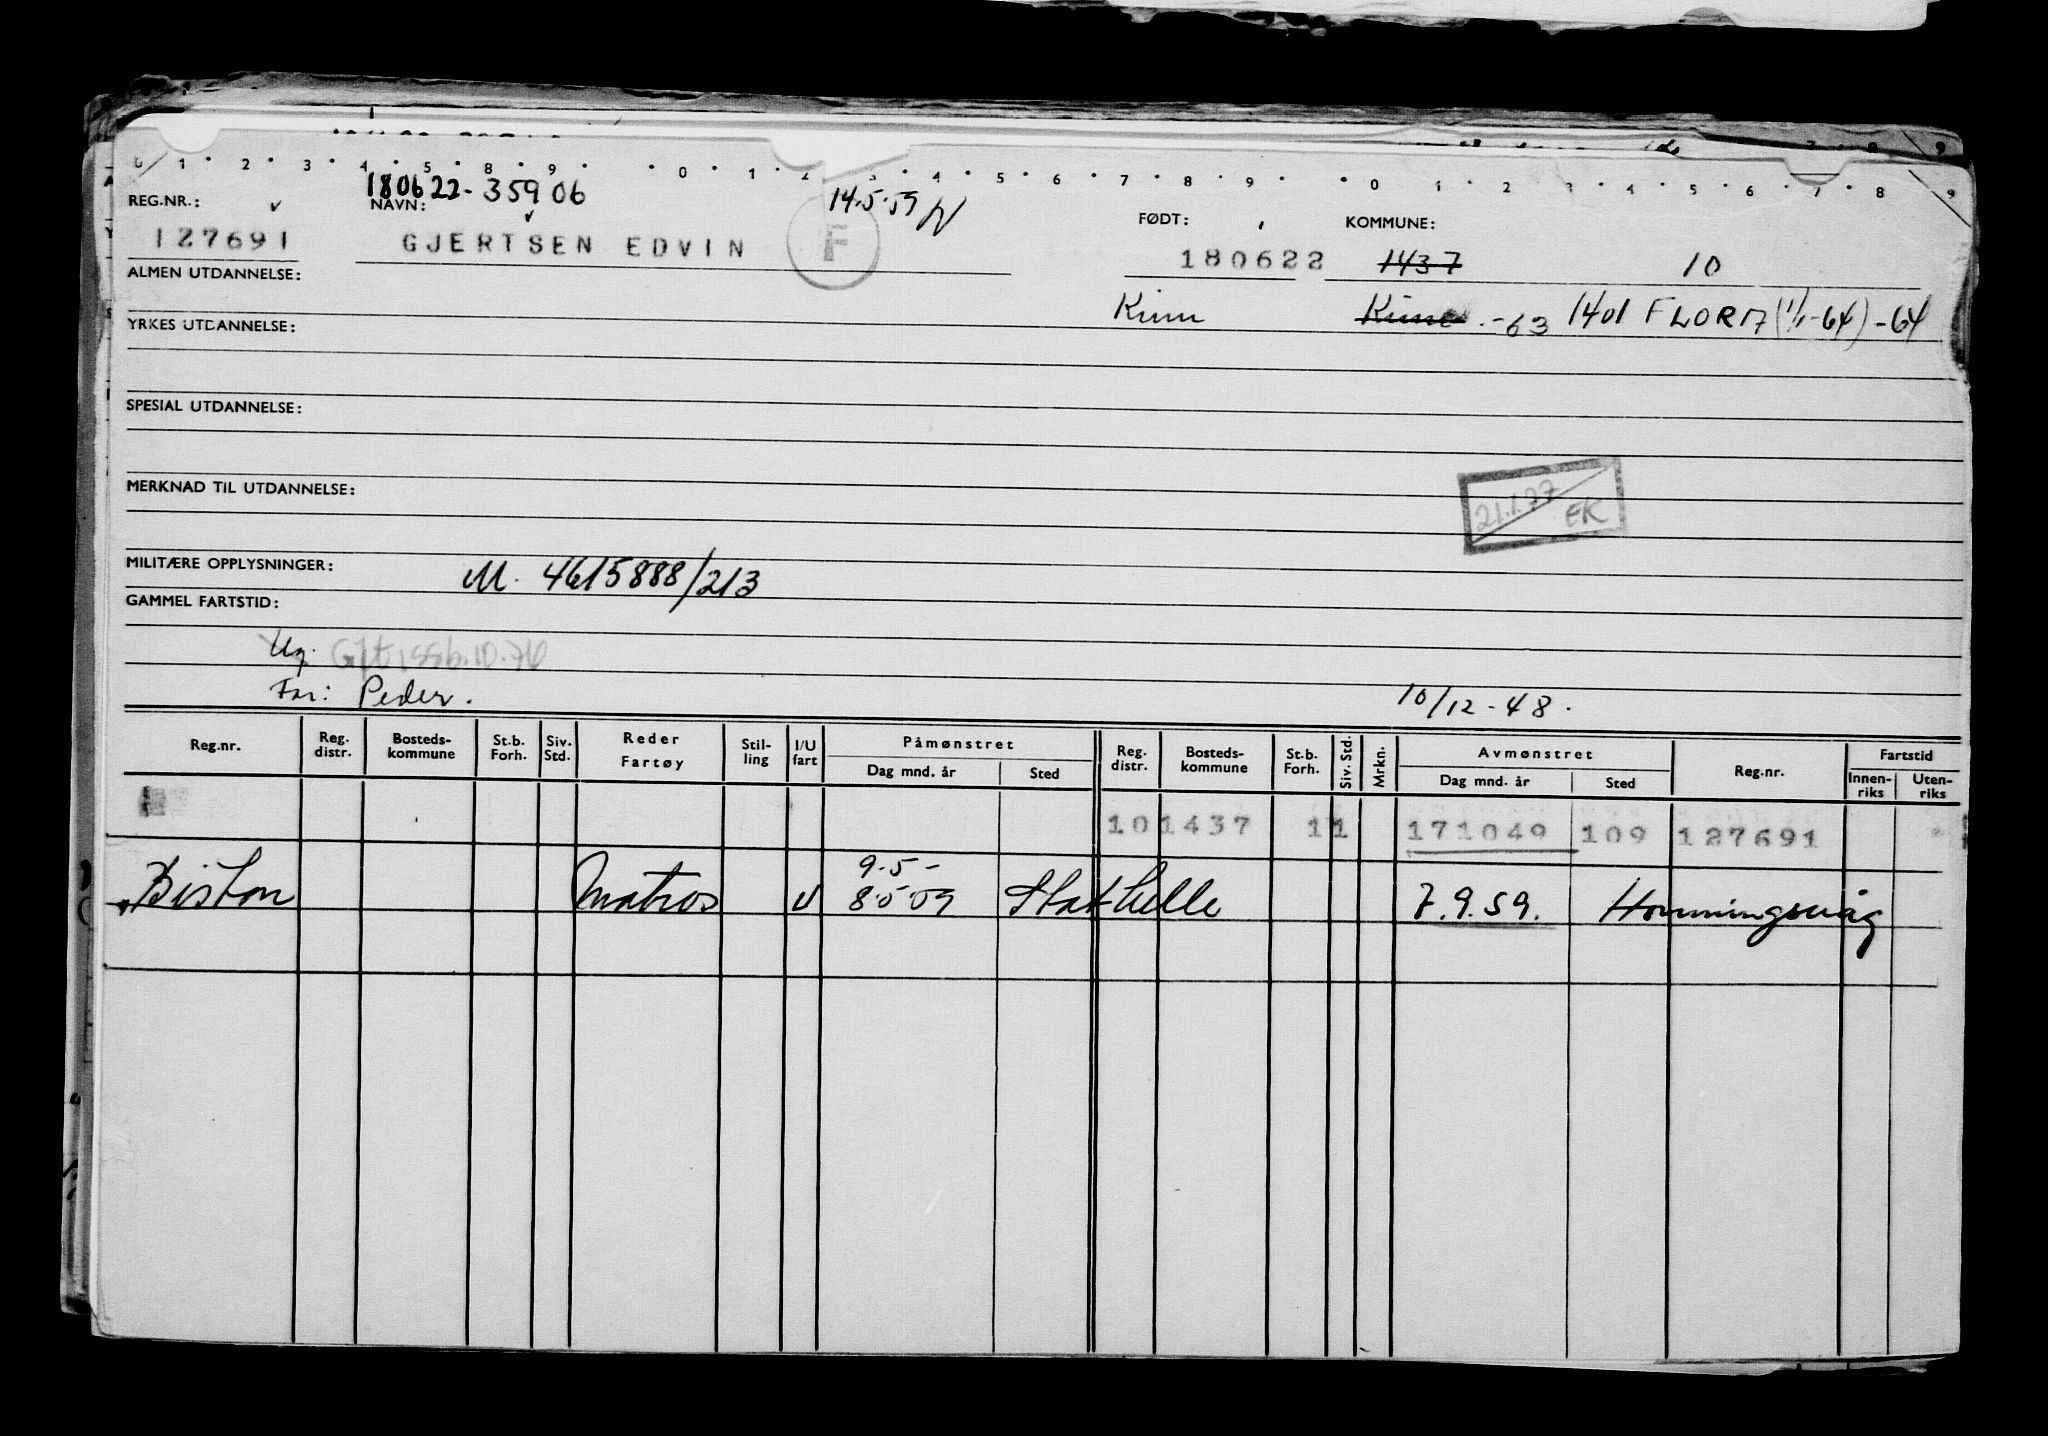 0 1 2 3 4 5 8 9 0 1 2 3 4 5 6 7 8 9 0 1 2 3 4 5 6 7 8 9
180622-35906 14.5.59
REG.NR.: NAVN: FØDT: KOMMUNE:
127691 GJERTSEN EDVIN F 180622 1437 10
ALMEN UTDANNELSE:
Kinn Kinn -63 1401 FLORA (1/1-64) -64
YRKES UTDANNELSE:
SPESIAL UTDANNELSE:
MERKNAD TIL UTDANNELSE:
21.1.77 EK
MILITÆRE OPPLYSNINGER: M. 4615888/213
GAMMEL FARTSTID:
Ug. Gift, SSB.10.76
Far: Peder. 10/12-48.
Reg.nr. Reg. distr. Bosteds-kommune St.b. Forh. Siv. Std. Reder Fartøy Stil-ling I/U fart Påmønstret Dag mnd. år Sted Reg. distr. Bosteds-kommune St.b. Forh. Siv. Std. Mrkn. Avmønstret Dag mnd. år Sted Reg.nr. Fartstid Innen-riks Uten-riks
10 1437 1 1 171049 109 127691
9.5-
Biston Matros U 8.5.59 Stathelle 7.9.59. Honningsvåg